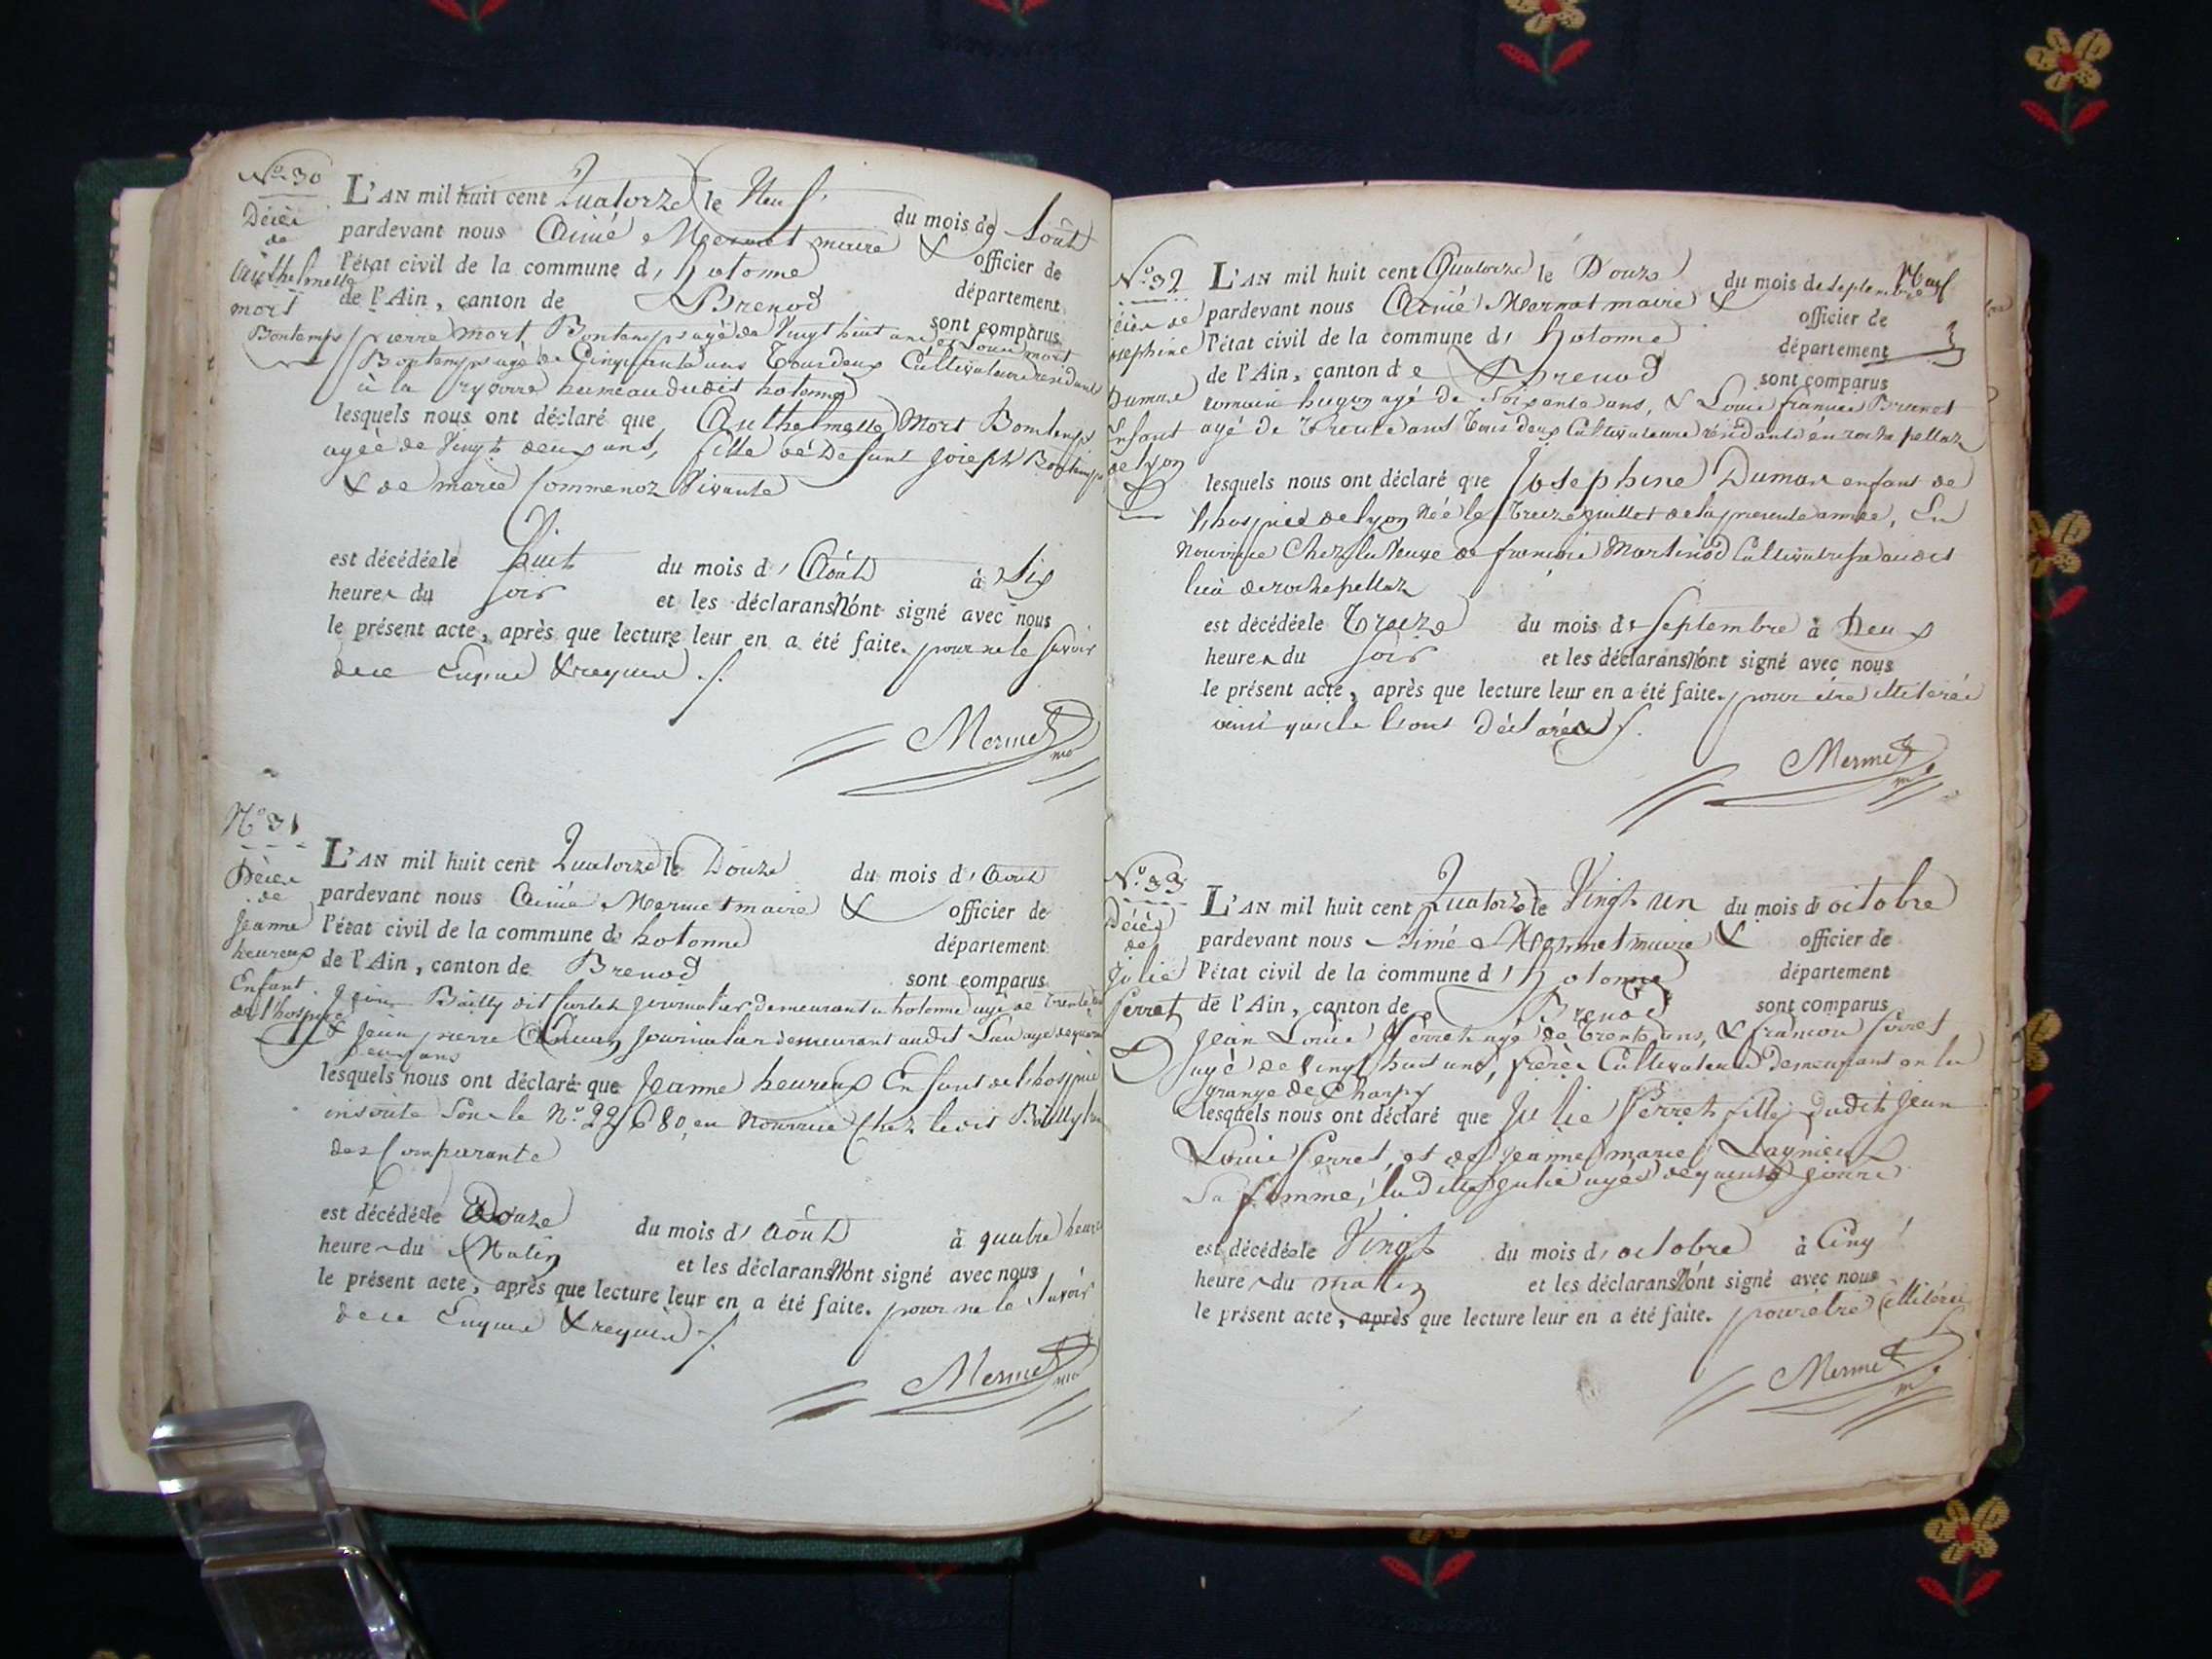 N.o 30
Décès
de
Anthelmette
mort
Bontemps
L'AN mil huit cent Quatorze le Neuf du mois de Août
pardevant nous Aimé Mermet maire & officier de
l'état civil de la commune d'hotonne département
de l'Ain, canton de Brenod sont comparus
pierre mort Bontemps agé de Vingt huit ans et Louis mort
Bontemps agé de Cinquante ans Tous deux Cultivateurs résidant
à la rivoire hameau dudit hotonne
lesquels nous ont déclaré que Anthelmette Mort Bontemps
agée de Vingt deux ans, fille de Defunt joseph Bontemps
& de marie Commenoz Vivante
est décédée le huit du mois d'Août à Six
heures du soir et les déclarans n'ont signé avec nous
le présent acte, après que lecture leur en a été faite. pour ne le savoir
de ce Enquis & requis ./.
Mermet
N.o 31
Décès
de
Jeanne
heureux
Enfant
de l'hospice
L'AN mil huit cent Quatorze le Douze du mois d'Août
pardevant nous Aimé Mermet maire & officier de
l'état civil de la commune de hotonne département
de l'Ain, canton de Brenod sont comparus
Bailly dit journalier demeurant a hotonne agé de trente
& jean pierre journalier demeurant audit Lieu agé de
deux ans
lesquels nous ont déclaré que Jeanne heureux Enfant de l'hospice
inscrite Sous le N.o 22680, en Nourrice Chez ledit Bailly l'un
des Comparants
est décédée le Douze du mois d'Août à quatre heures
heures du Matin et les déclarans n'ont signé avec nous
le présent acte, après que lecture leur en a été faite. pour ne le savoir
de ce Enquis & requis ./.
Mermet
N.o 32
décès de
josephine
Dumas
Enfant
de lyon
L'AN mil huit cent Quatorze le Douze du mois de Septembre Neuf
pardevant nous Aimé Mermet maire & officier de
l'état civil de la commune d'hotonne département
de l'Ain, canton de Brenod sont comparus
romain hugon agé de Soixante ans, & Louis françois Brunet
agé de Trente ans Tous deux Cultivateurs résidants en roche pellaz
lesquels nous ont déclaré que Josephine Dumas enfant de
l'hospice de lyon Née le Treize juillet de la presente année, En
Nourrice Chez la Veuve de françois Martinod Cultivatrice audit
lieu de rochepellaz
est décédée le Treize du mois de Septembre à Deux
heures du soir et les déclarans n'ont signé avec nous
le présent acte, après que lecture leur en a été faite. pour être illiterés
ainsi qu'ils l'ont déclarés ./.
Mermet
N.o 33
Décès
de
julie
Perret
L'AN mil huit cent Quatorze le Vingt un du mois d'octobre
pardevant nous Aimé Mermet maire & officier de
l'état civil de la commune d'hotonne département
de l'Ain, canton de Brenod sont comparus
Jean Louis Perret agé de Trente ans, & françois perret
agé de Vingt huit ans, frères Cultivateurs Demeurant en la
grange de Charpy
lesquels nous ont déclaré que Julie Perret fille dudit Jean
Louis Perret, et de Jeanne marie Laynieux
Sa femme, ladite julie agée de quinze jours
est décédée le Vingt du mois d'octobre à Cinq
heures du matin et les déclarans n'ont signé avec nous
le présent acte, après que lecture leur en a été faite. pour être illiterés
Mermet